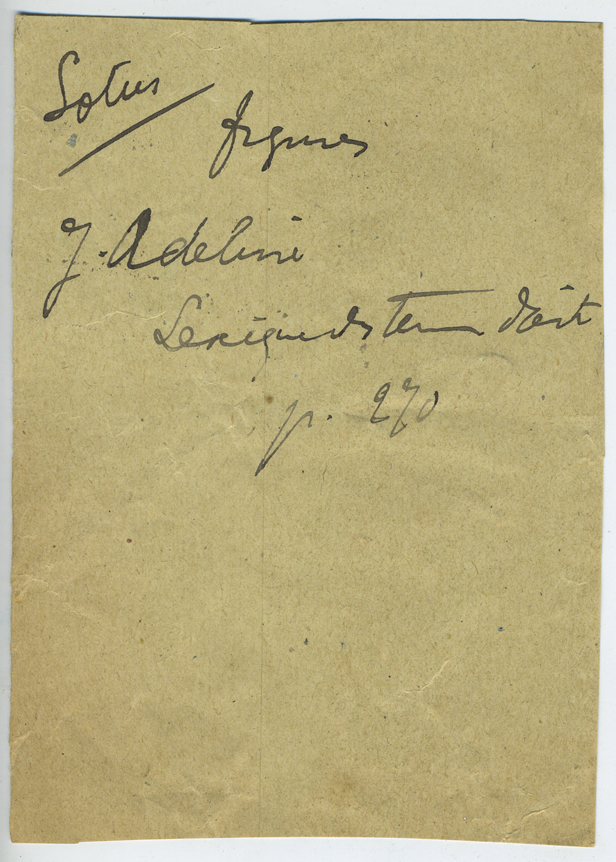 Lotus
figures
J. Adeline
Lexique des termes d'art
p. 270